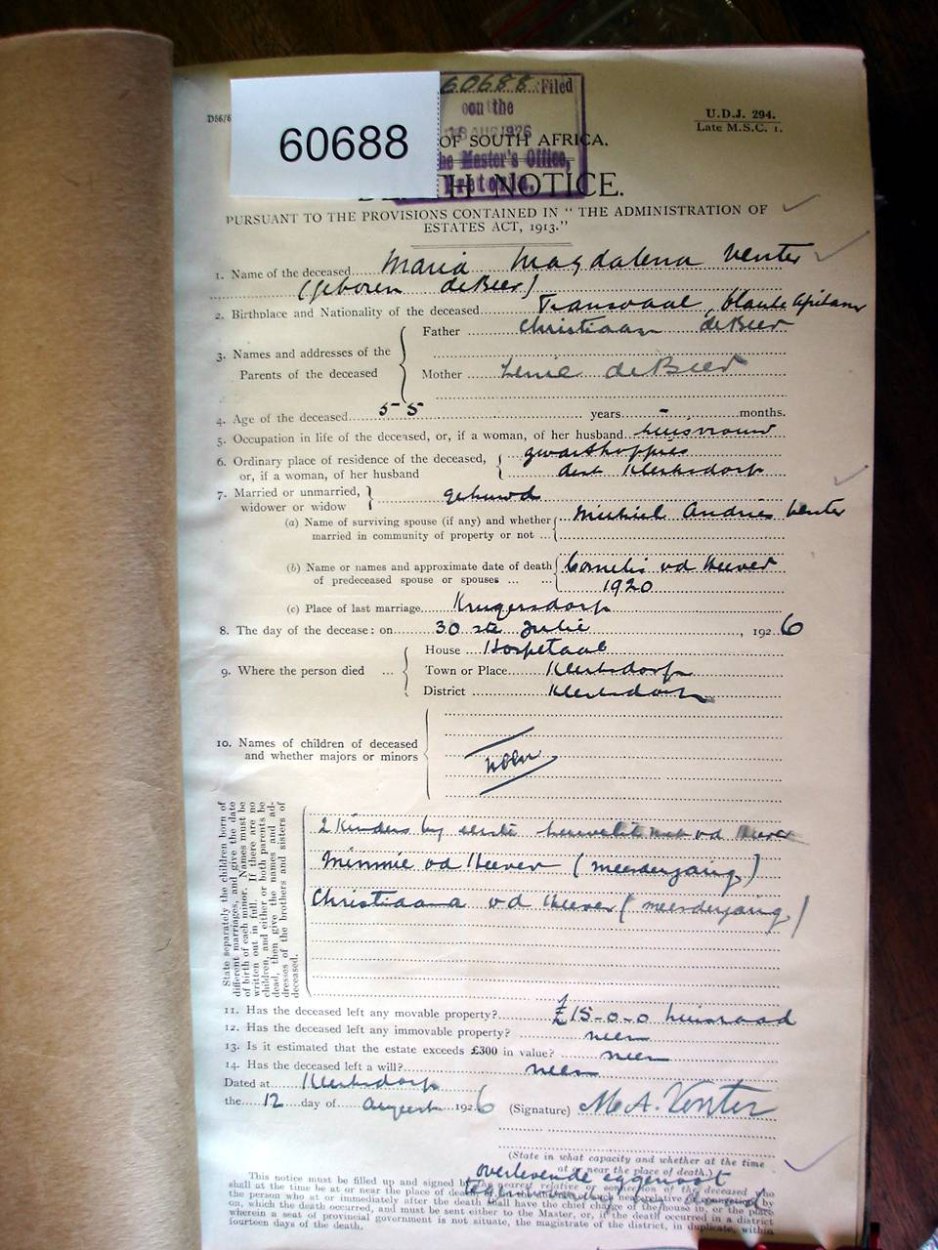 60688 Filed
on the
18 AUG 1926
D56/6
U.D.J. 294.
Late M.S.C. 1.
60688
OF SOUTH AFRICA.
he Master's Office,
Pretoria.
H NOTICE.
PURSUANT TO THE PROVISIONS CONTAINED IN "THE ADMINISTRATION OF
ESTATES ACT, 1913."
1. Name of the deceased Maria Magdalena Venter
(geboren de Beer)
2. Birthplace and Nationality of the deceased Transvaal,
3. Names and addresses of the
Parents of the deceased
Father Christiaan de Beer
Mother Lenie de Beer
4. Age of the deceased 55 years - months.
5. Occupation in life of the deceased, or, if a woman, of her husband huisvrouw
6. Ordinary place of residence of the deceased,
or, if a woman, of her husband
dist Klerksdorp
7. Married or unmarried,
widower or widow
gehuwd
(a) Name of surviving spouse (if any) and whether
married in community of property or not ...
Michiel Andries Venter
(b) Name or names and approximate date of death
of predeceased spouse or spouses ... ...
Cornelis vd Heever
1920
(c) Place of last marriage Krugersdorp
8. The day of the decease: on 30 ste Julie, 1926
9. Where the person died ...
House Hospetaal
Town or Place Klerksdorp
District Klerksdorp
10. Names of children of deceased
and whether majors or minors
State separately the children born of
different marriages, and give the date
of birth of each minor. Names must be
written out in full. If there are no
children, and either or both parents be
dead, then give the names and ad-
dresses of the brothers and sisters of
deceased.
2 Kinders by eerste huwelik met vd Heever
Minnie vd Heever (meerderjarig)
Christiaan vd Heever (meerderjarig)
11. Has the deceased left any movable property? £15-0-0 huisraad
12. Has the deceased left any immovable property? neen
13. Is it estimated that the estate exceeds £300 in value? neen
14. Has the deceased left a will? neen
Dated at Klerksdorp
the 12 day of August 1926 (Signature) M. A. Venter
(State in what capacity and whether at the time
at or near the place of death.)
overlevende eggenoot
This notice must be filled up and signed by the nearest relative or connection of the deceased who
shall at the time be at or near the place of death,
the person who at or immediately after the death shall have the chief charge of the house in, or the place
on, which the death occurred, and must be sent either to the Master, or, if the death occurred in a district
wherein a seat of provincial government is not situate, the magistrate of the district, in duplicate, within
fourteen days of the death.